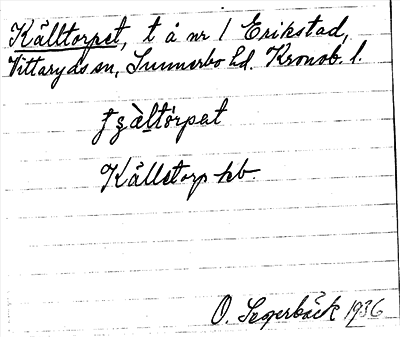 Källtorpet, t å nr 1 Erikstad,
Vittaryds sn, Sunnerbo hd. Kronob. l.
tʒältórpet
Källetorp kb.
O. Segerbäck 1936